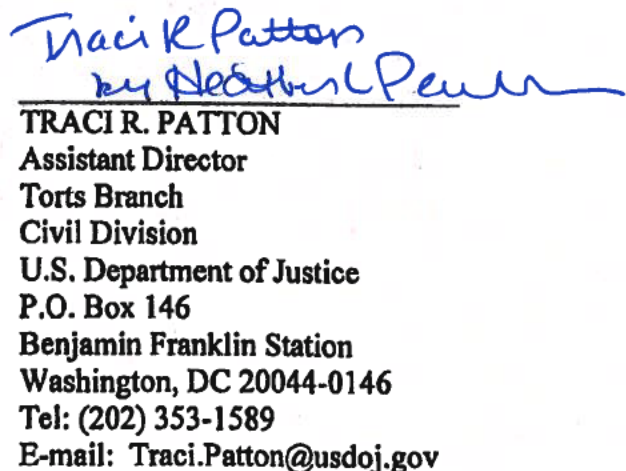 Traci R Patton
by Heather L
TRACI R. PATTON
Assistant Director
Torts Branch
Civil Division
U.S. Department of Justice
P.O. Box 146
Benjamin Franklin Station
Washington, DC 20044-0146
Tel: (202) 353-1589
E-mail: Traci.Patton@usdoj.gov